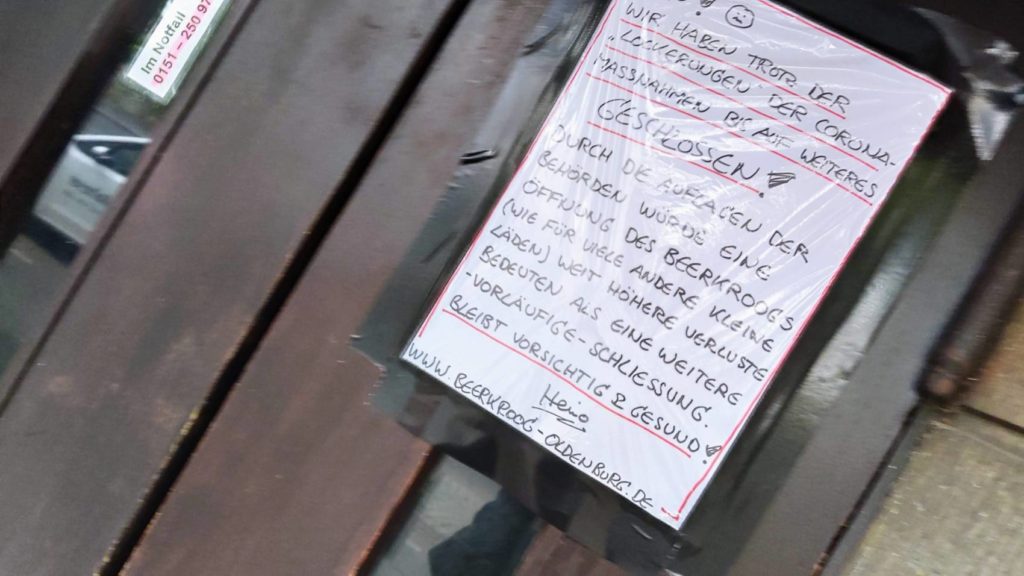 Im Notfall
0151 - 250 97
WIR HABEN TROTZ DER
"LOCKERUNGEN" DER CORONA-
MASSNAHMEN BIS AUF WEITERES
GESCHLOSSEN!
DURCH DIE AUFLAGEN DER
BEHÖRDEN WÜRDE EINE
ÖFFNUNG DES BEERKROOGS
(WIE FÜR VIELE ANDERE KLEINE
LÄDEN) WEIT HÖHERE VERLUSTE
BEDEUTEN ALS EINE WEITERE
-VORLÄUFIGE- SCHLIESSUNG.
BLEIBT VORSICHTIG & GESUND!
Heino
WWW.BEERKROOG-OLDENBURG.DE